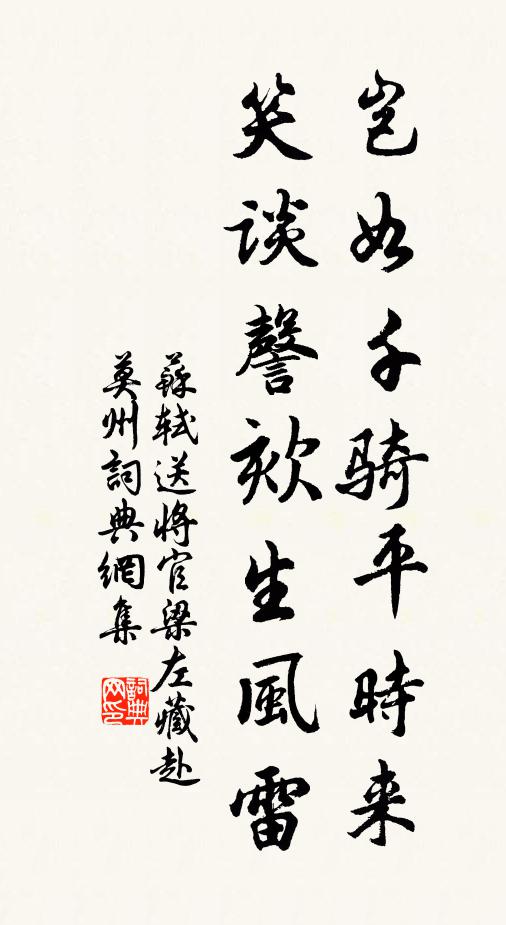 岂如千骑平時来
笑谈謦欬生風雷
蘇軾送將官梁左藏赴
莫州詞典網集
詞典网印